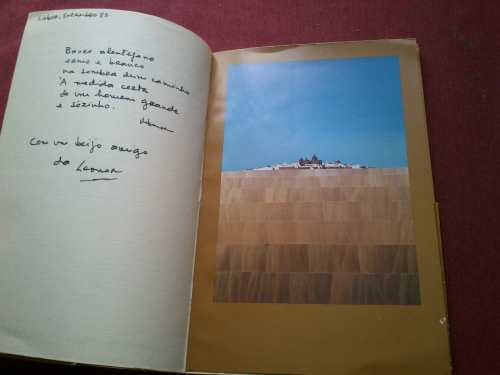 Lisboa, Setembro 83
Banco alentejano
ermo e branco
na sombra dum caminho
À medida certa
de um homem grande
e sòzinho.
Com um beijo amigo
da Leonor